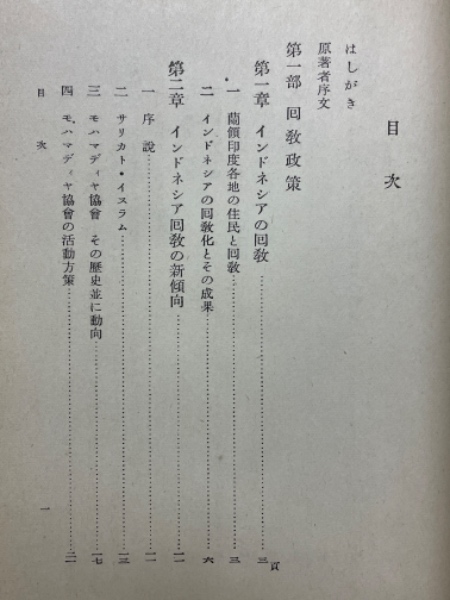 目次
はしがき
原著者序文
第一部 回敎政策
第一章 インドネシアの回敎……三頁
一 蘭領印度各地の住民と回敎……三
二 インドネシアの回敎化とその成果……六
第二章 インドネシア回敎の新傾向……一一
一 序說……一一
二 サリカト・イスラム……一三
三 モハマディヤ協會 その歷史並に動向……一七
四 モハマディヤ協會の活動方策……二一
目次
一